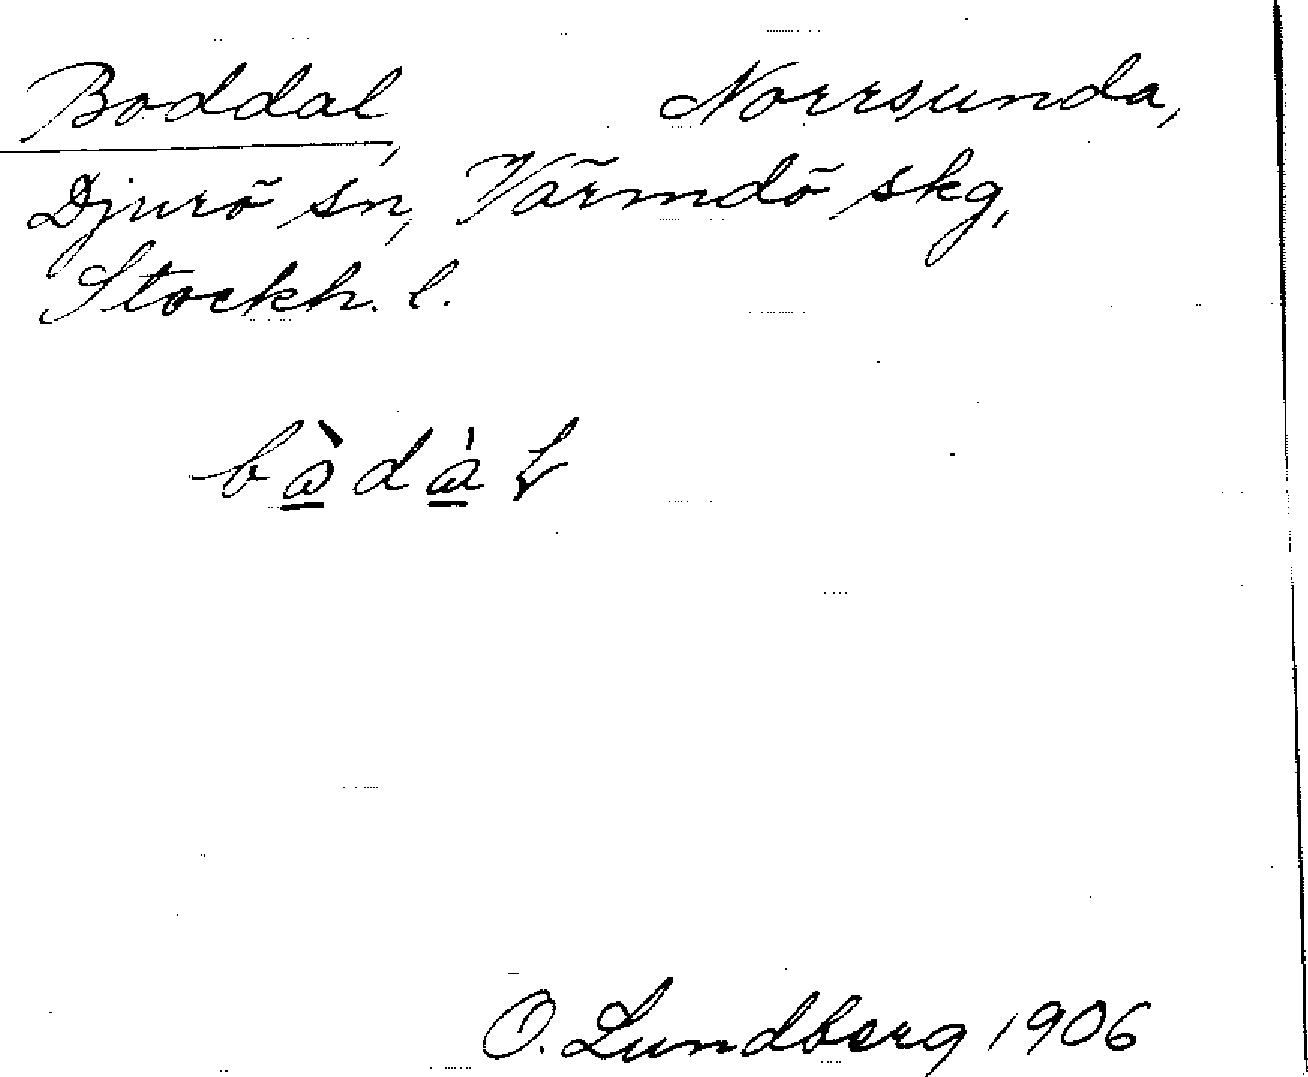 Boddal, Norrsunda,
Djurö sn, Värmdö skg,
Stockh. l.
O. Lundberg 1906